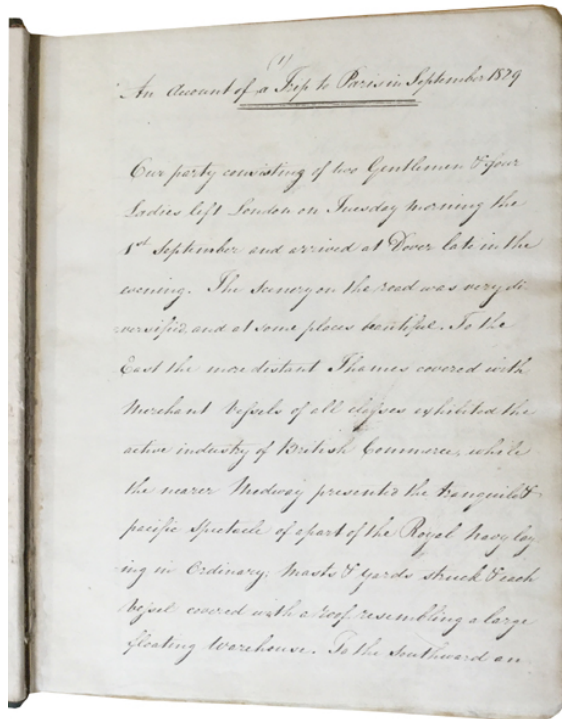 (1)
An Account of a Trip to Paris in September 1829
Our party consisting of two Gentlemen & four
Ladies left London on Tuesday morning the
1st September and arrived at Dover late in the
evening. The Scenery on the road was very di
-versified and at some places beautiful. To the
East the more distant Thames covered with
Merchant Vessels of all classes exhibited the
active industry of British Commerce, while
the nearer Medway presented the tranquil &
pacific Spectacle of a part of the Royal Navy lay
-ing in Ordinary; Masts & Yards struck & each
Vessel covered with a roof resembling a large
floating Warehouse. To the Southward an